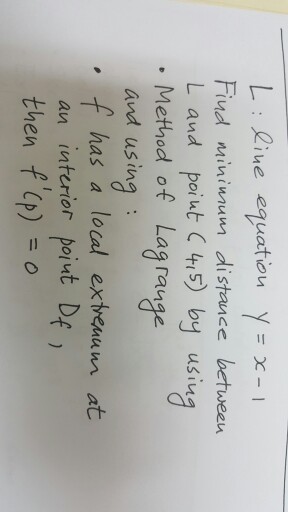 L : line equation y = x - 1
Find minimum distance between
L and point (4,5) by using
• Method of Lagrange
and using :
• f has a local extremum at
an interior point Df,
then f'(p) = 0